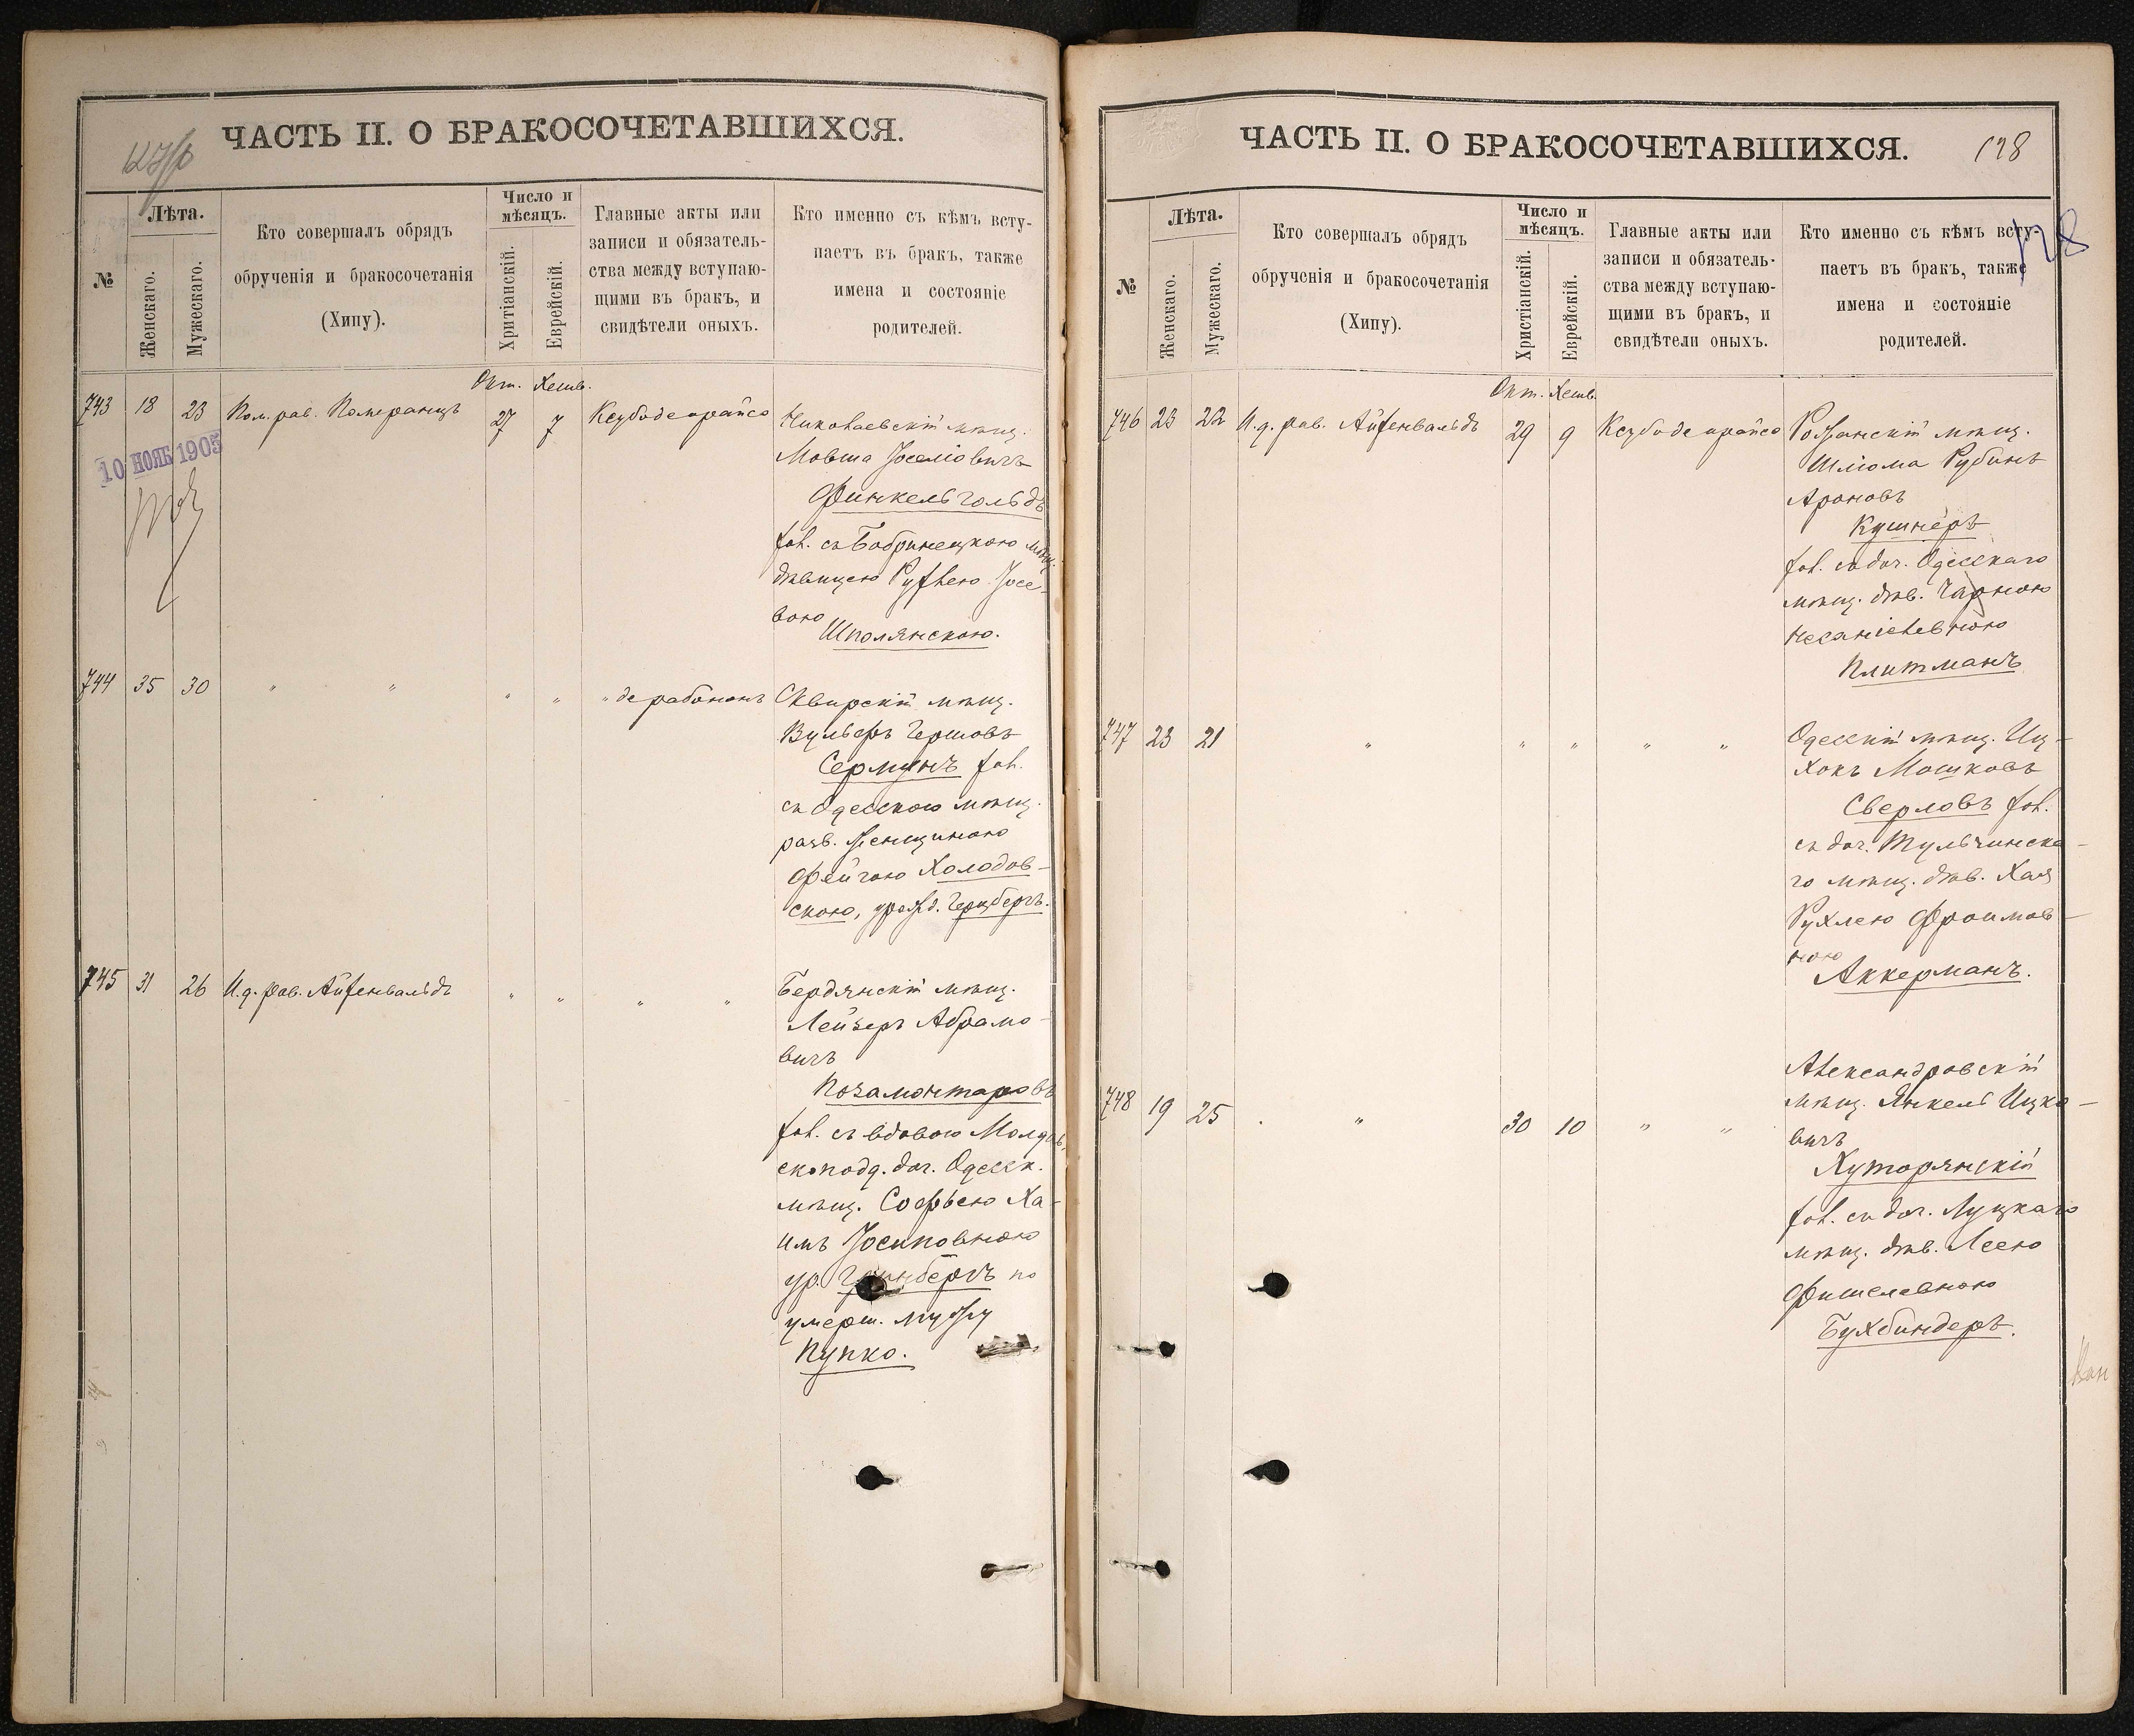 ЧАСТЬ II. О БРАКОСОЧЕТАВШИХСЯ.
№
Лѣта.
Женскаго.
Мужескаго.
Кто совершалъ обрядъ
обрученія и бракосочетанія
(Хипу).
Число и
мѣсяцъ.
Хритіанскій.
Еврейскій.
Главные акты или
записи и обязатель-
ства между вступаю-
щими въ бракъ, и
свидѣтели оныхъ.
Кто именно съ кѣмъ всту-
паетъ въ бракъ, также
имена и состояніе
родителей.
Окт. Хешв.
743 18 23 Пом. рав. Померанцъ 27 7 Ксубо де орайсо
Николаевскій мѣщ.
Мовша Іоселіовичъ
Финкельгольдъ
хол. съ Бобринецкою мѣщ.
дѣвицею Рухлею Іосе-
вою
Шполянскою.
10 НОЯБ 1905
744 35 30 " " " " " де рабонон
Сквирскій мѣщ.
Вульфъ Гершовъ
хол.
съ Одесскою мѣщ.
разв. женщиною
Фейгою Холодов-
скою, урожд. Герцбергъ.
745 31 26 И. д. рав. Айзенвальдъ " " " "
Бердянскій мѣщ.
Лейзеръ Абрамо-
вичъ
Позамонтаровъ
хол. съ вдовою
доч. Одесск.
мѣщ. Софьею Ха-
имъ Іосиповною
ур. Гринбергъ по
умерш. мужу
Пупко.
ЧАСТЬ II. О БРАКОСОЧЕТАВШИХСЯ.
128
128
№
Лѣта.
Женскаго.
Мужескаго.
Кто совершалъ обрядъ
обрученія и бракосочетанія
(Хипу).
Число и
мѣсяцъ.
Христіанскій.
Еврейскій.
Главные акты или
записи и обязатель-
ства между вступаю-
щими въ бракъ, и
свидѣтели оныхъ.
Кто именно съ кѣмъ всту-
паетъ въ бракъ, также
имена и состояніе
родителей.
Окт. Хешв.
746 23 22 И. д. рав. Айзенвальдъ 29 9 Ксубо де орайсо
мѣщ.
Шлома Рубинъ
Ароновъ
Кушнеръ
хол. съ доч. Одесскаго
мѣщ. дѣв. Чарною
Плитманъ
747 23 21 " " " " "
Одесскій мѣщ. Иц-
хокъ Мошковъ
Сверловъ хол.
съ доч. Тульчинска-
го мѣщ. дѣв. Хая
Рухлею Фроимов-
ною
Аккерманъ.
748 19 25 " " 30 10 " "
Александровскій
мѣщ. Янкель Ицко-
вичъ
Хуторянскій
хол. съ доч. Луцкаго
мѣщ. дѣв. Леею
Фишелевною
Бухбиндеръ.